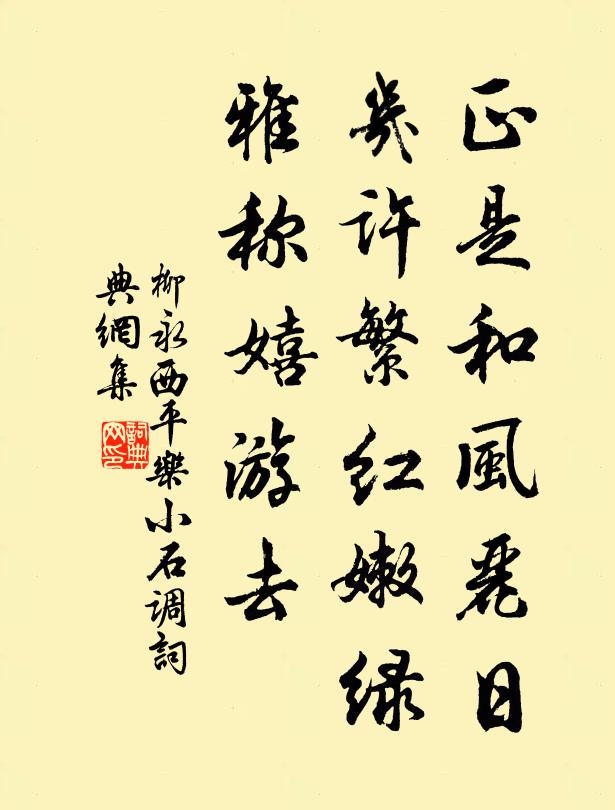 正是和風麗日
幾许繁红嫩绿
雅称嬉游去
柳永西平樂小石调詞
典網集
詞典网印